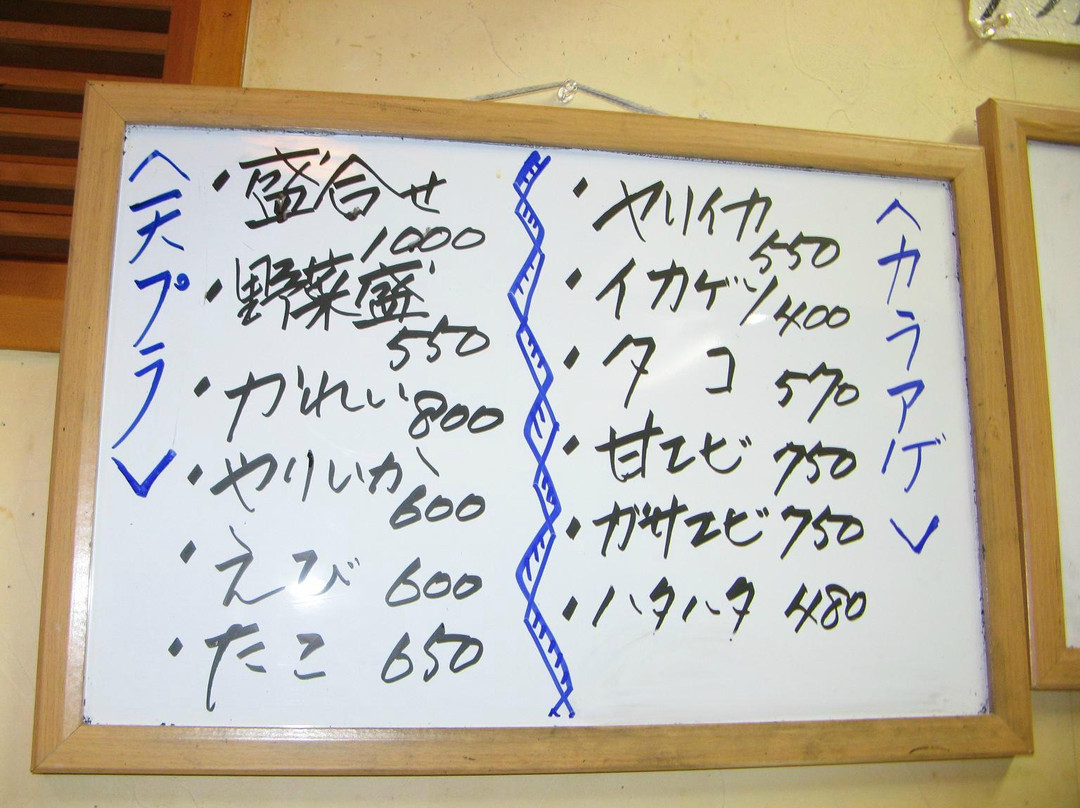 〈天プラ〉
・盛合せ
1000
・野菜盛
550
・かれい 800
・やりいか
600
・えび 600
・たこ 650
〈カラアゲ〉
・ヤリイカ
550
・イカゲソ 400
・タコ 570
・甘エビ 750
・ガサエビ 750
・ハタハタ 480